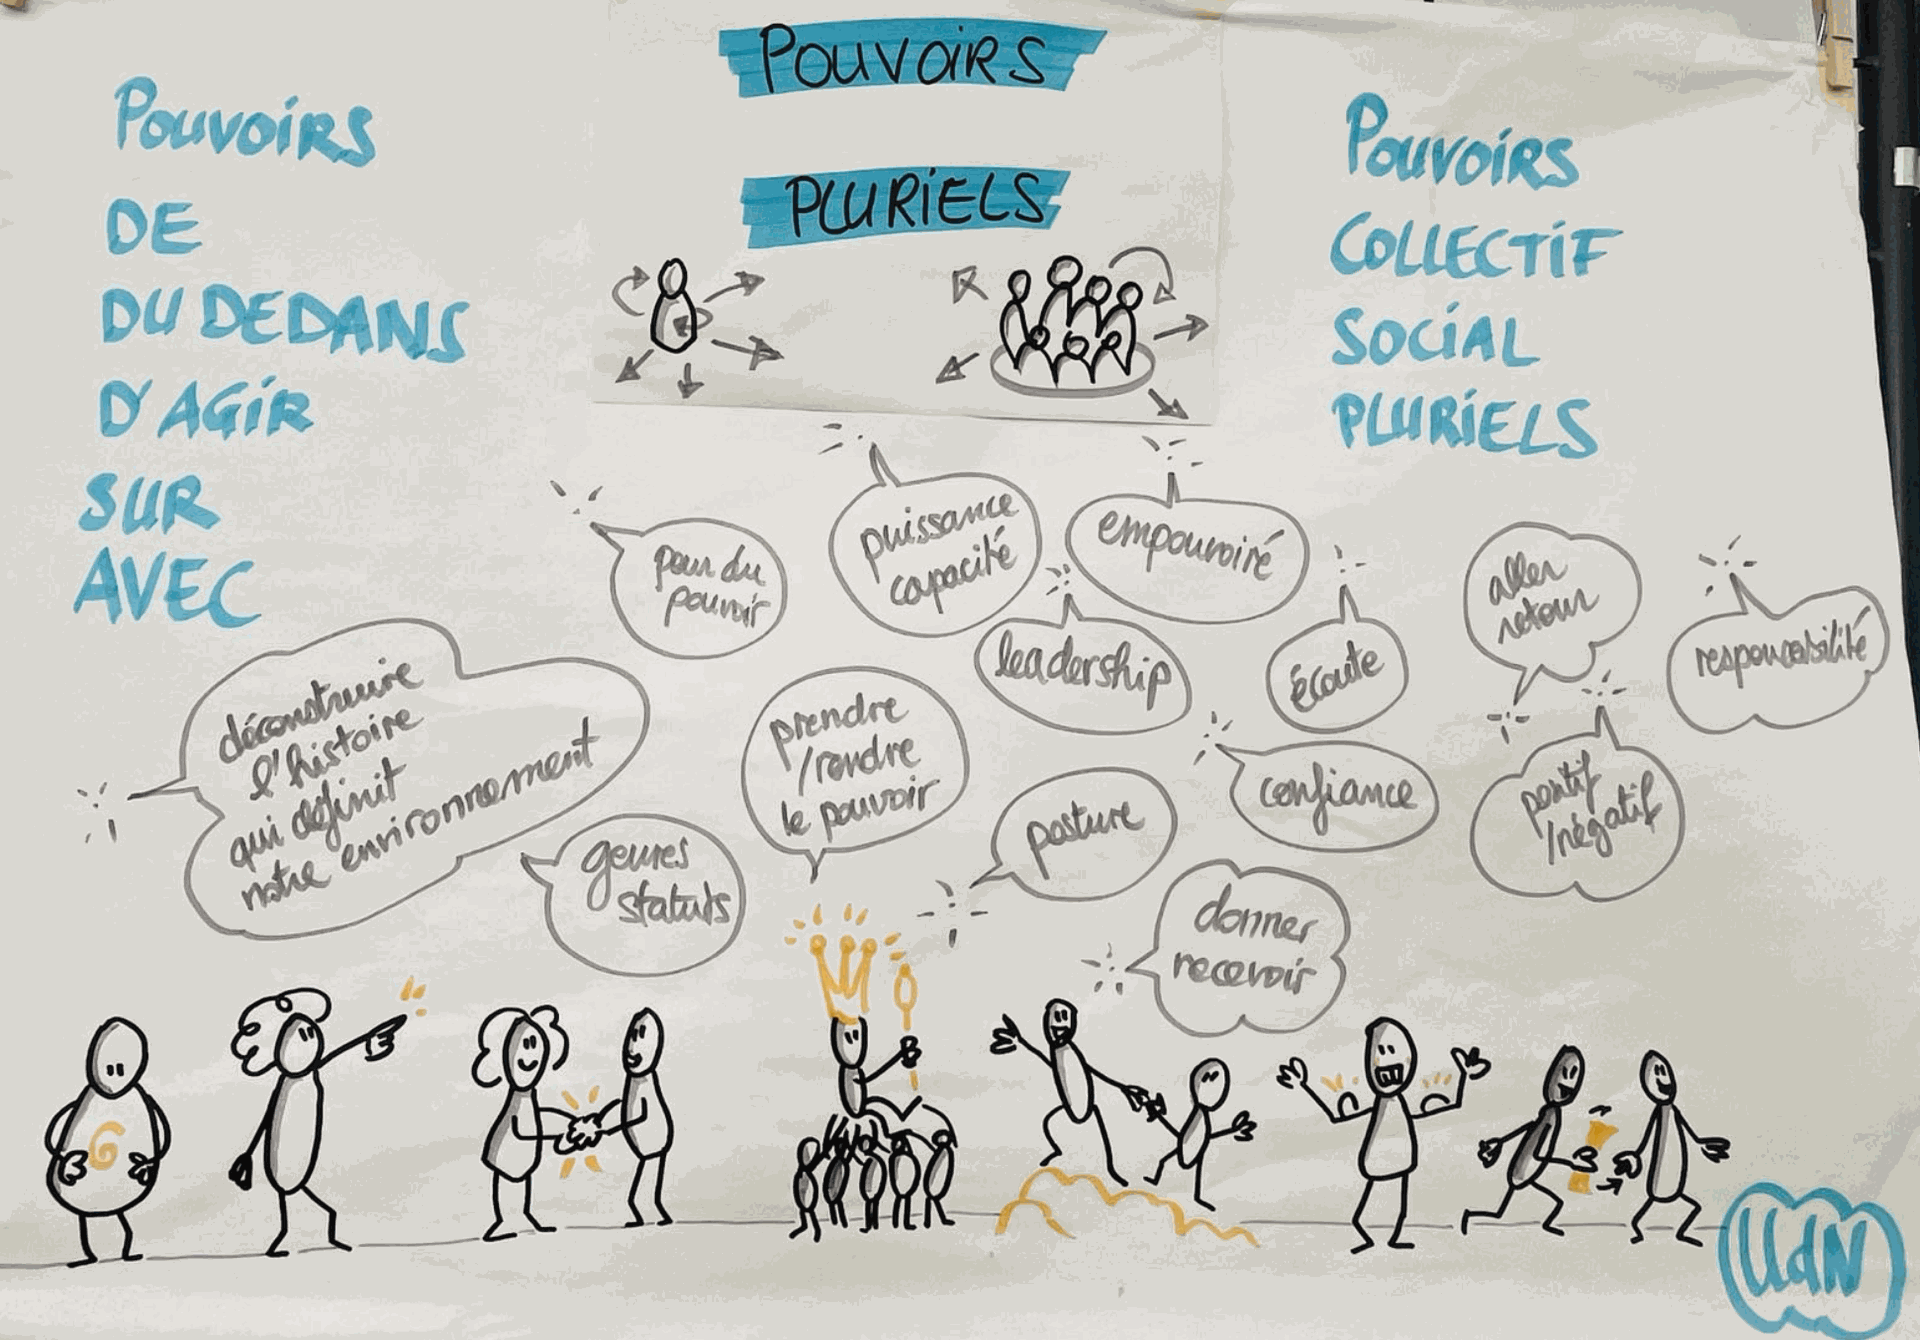 POUVOIRS
PLURIELS
POUVOIRS
DE
DU DEDANS
D'AGIR
SUR
AVEC
POUVOIRS
COLLECTIF
SOCIAL
PLURIELS
peur du
pouvoir
puissance
capacité
empouvoiré
leadership
écoute
aller
retour
responsabilité
déconstruire
l'histoire
qui définit
notre environnement
genres
statuts
prendre
/rendre
le pouvoir
posture
confiance
positif
/négatif
donner
recevoir
UdN